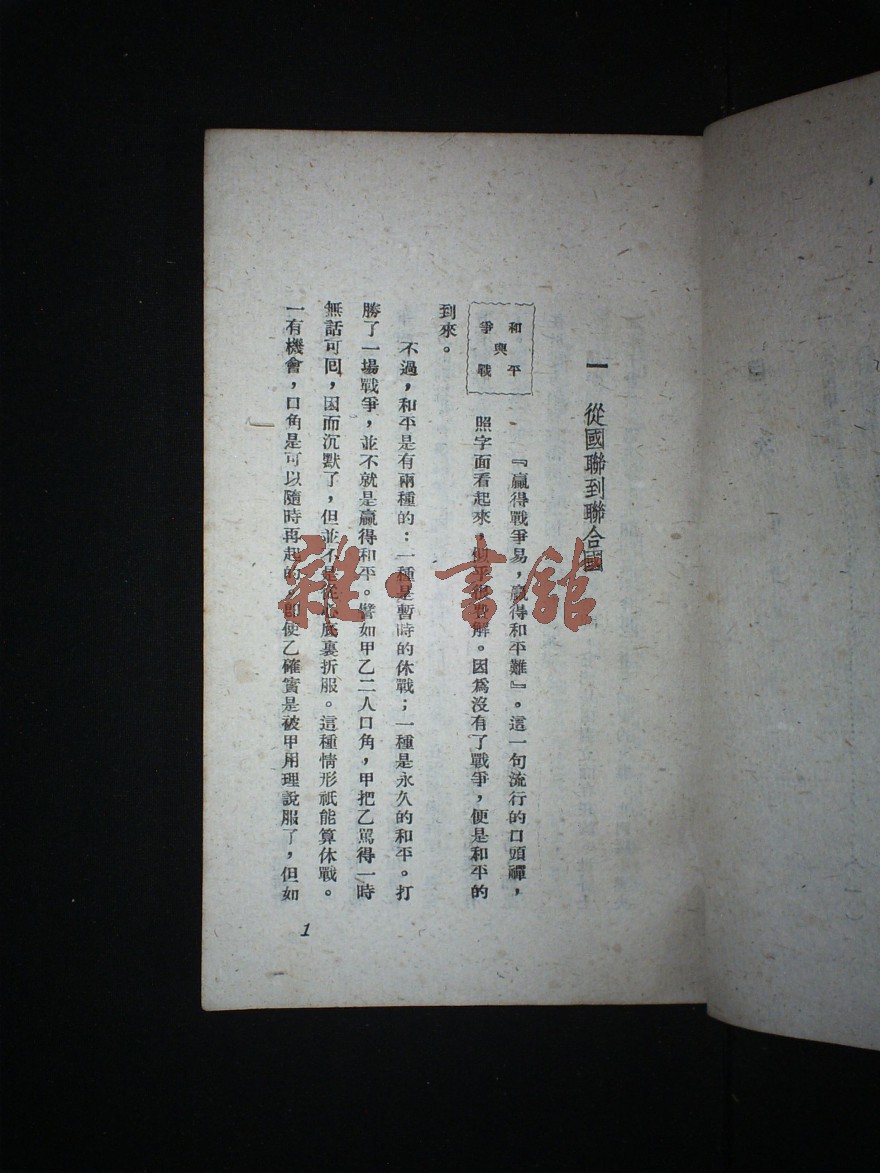 一　從國聯到聯合國
和平與爭戰
『贏得戰爭易，贏得和平難』。這一句流行的口頭禪，
照字面看起來，似乎很費解。因爲沒有了戰爭，便是和平的
到來。
不過，和平是有兩種的：一種是暫時的休戰；一種是永久的和平。打
勝了一場戰爭，並不就是贏得和平。譬如甲乙二人口角，甲把乙罵得一時
無話可回，因而沉默了，但並不是從心底裏折服。這種情形祇能算休戰。
一有機會，口角是可以隨時再起的。即使乙確實是被甲用理說服了，但如
1
雜·書館